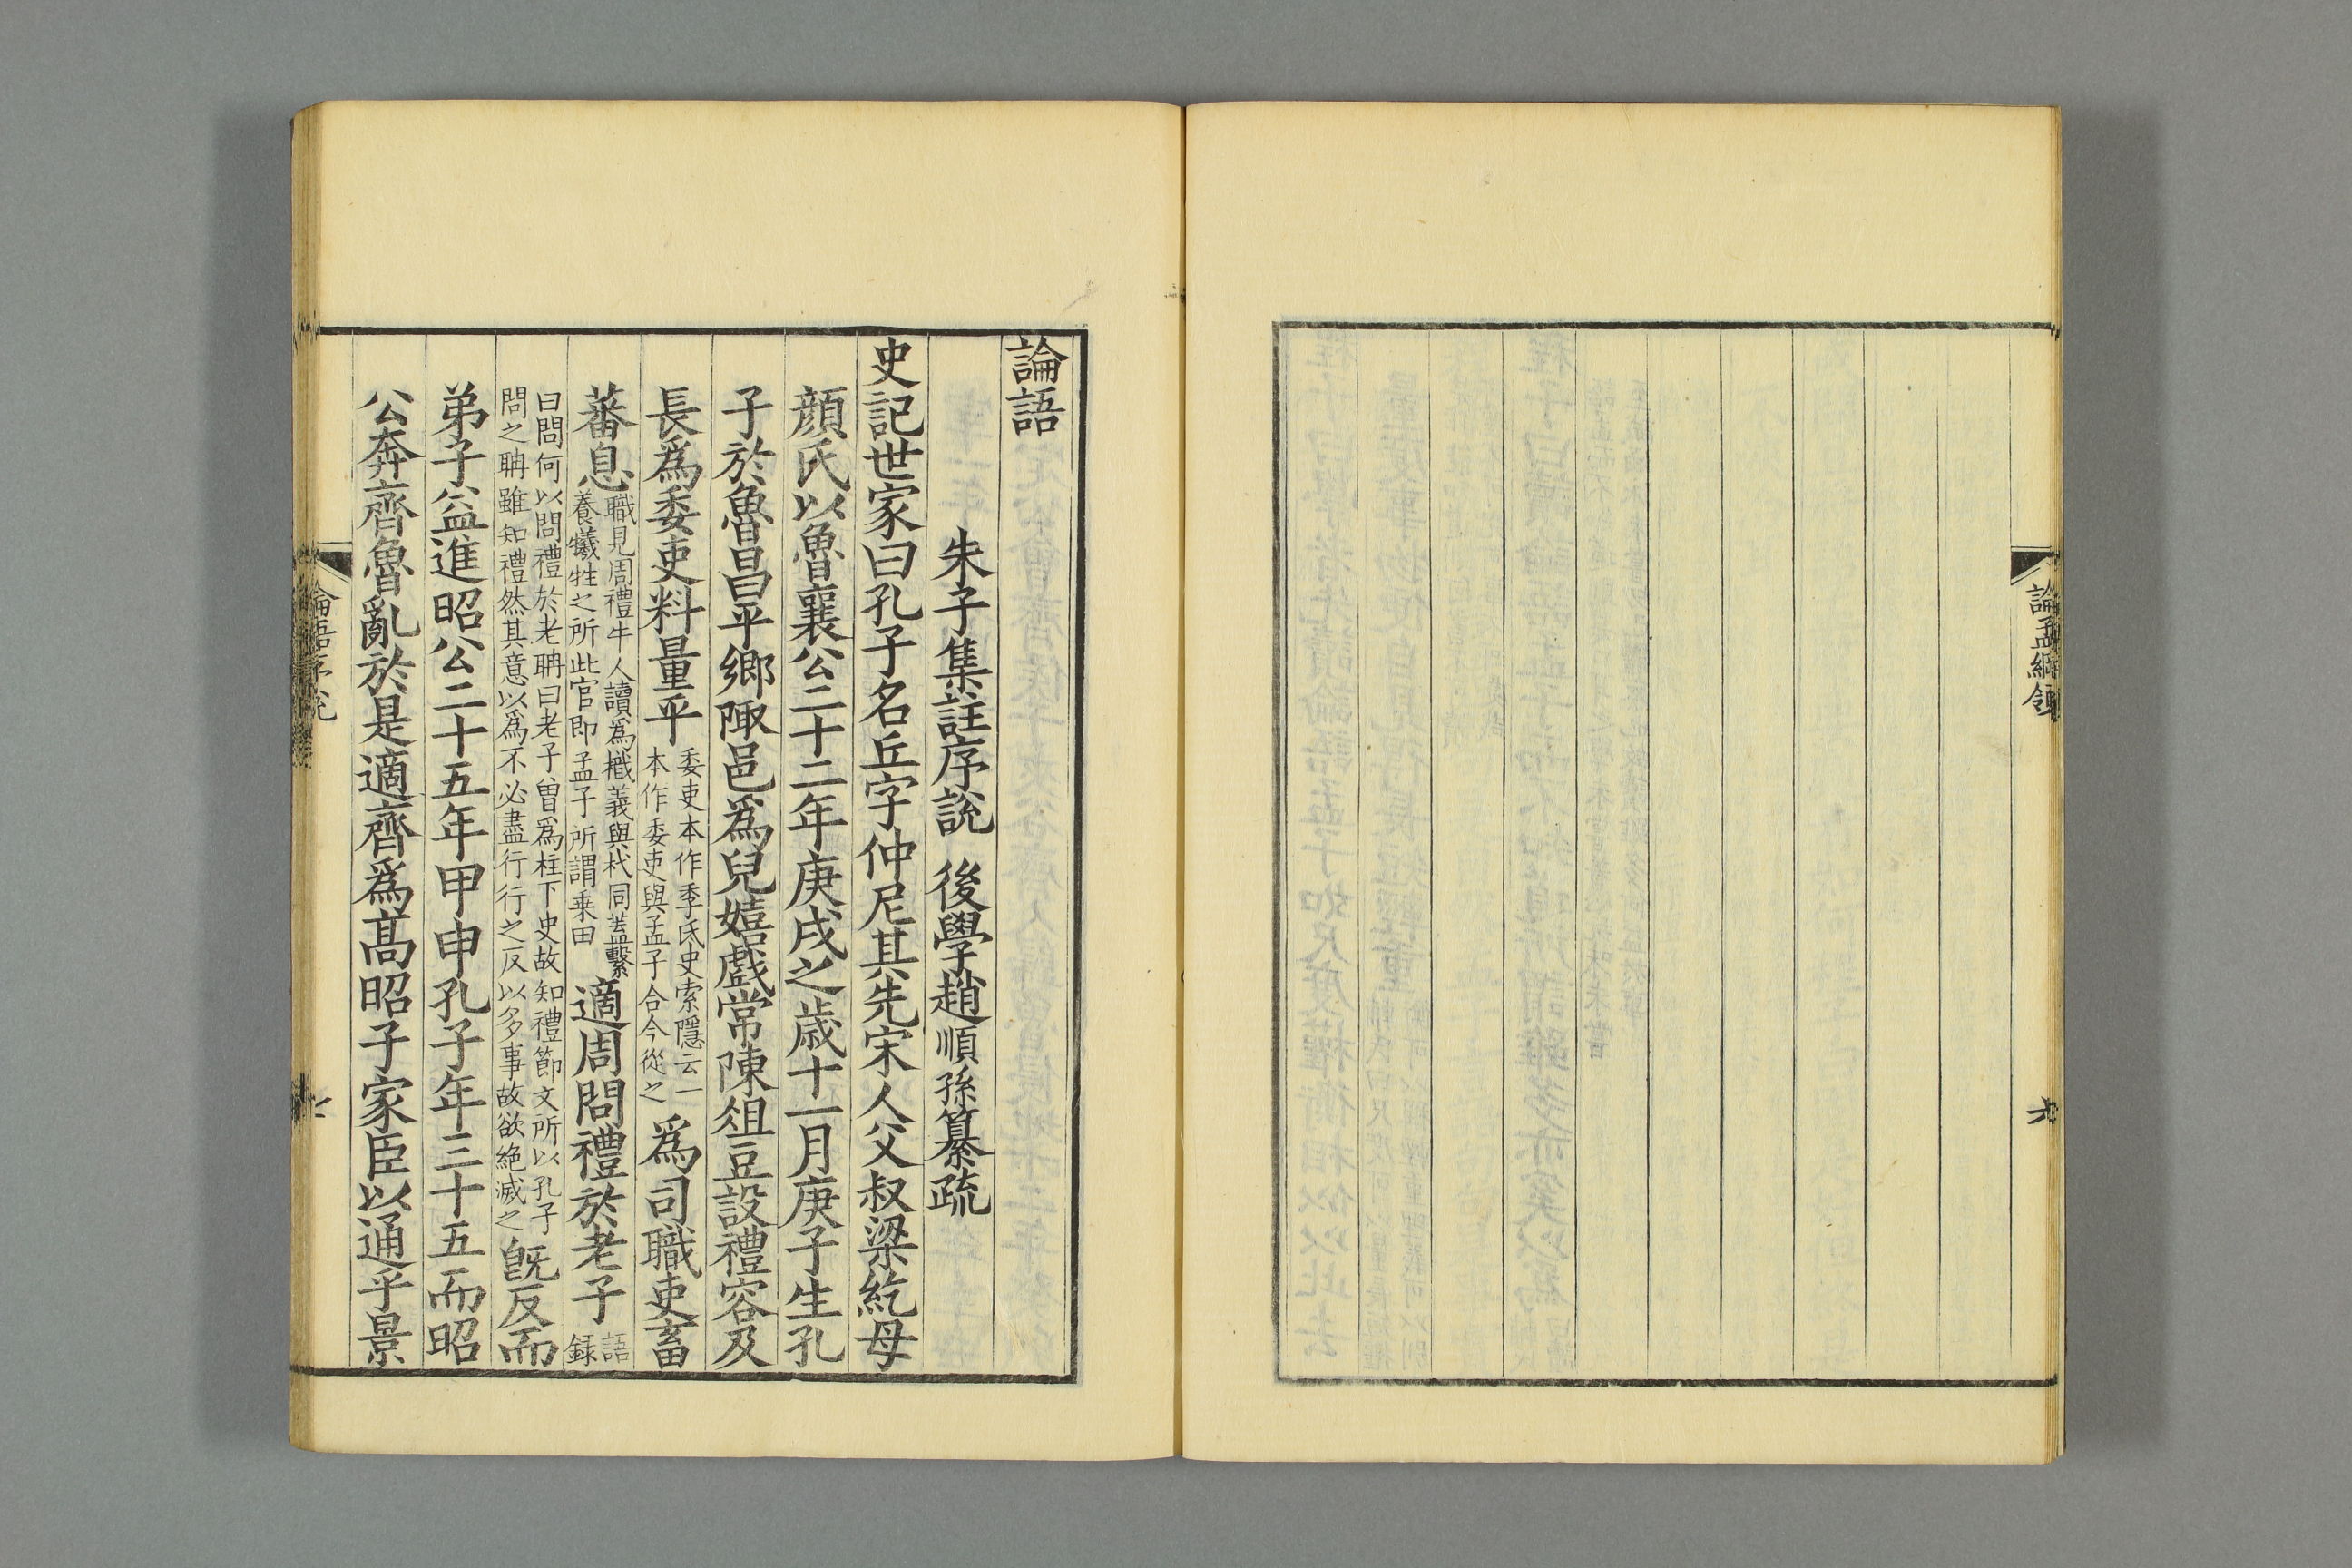 論孟綱領
六
論語
朱子集註序說　後學趙順孫纂疏
史記世家曰孔子名丘字仲尼其先宋人父叔梁紇母
顏氏以魯襄公二十二年庚戌之歲十一月庚子生孔
子於魯昌平鄉陬邑爲兒嬉戲常陳俎豆設禮容及
長爲委吏料量平
委吏本作季氏史索隱云一
本作委吏與孟子合今從之
爲司職吏畜
蕃息
職見周禮牛人讀爲樴義與杙同蓋繫
養犧牲之所此官即孟子所謂乗田
適周問禮於老子
語
録
曰問何以問禮於老聃曰老子曽爲柱下史故知禮節文所以孔子
問之聃雖知禮然其意以爲不必盡行行之反以多事故欲絶滅之
旣反而
弟子益進昭公二十五年甲申孔子年三十五而昭
公奔齊魯亂於是適齊爲髙昭子家臣以通乎景
論語序說
七